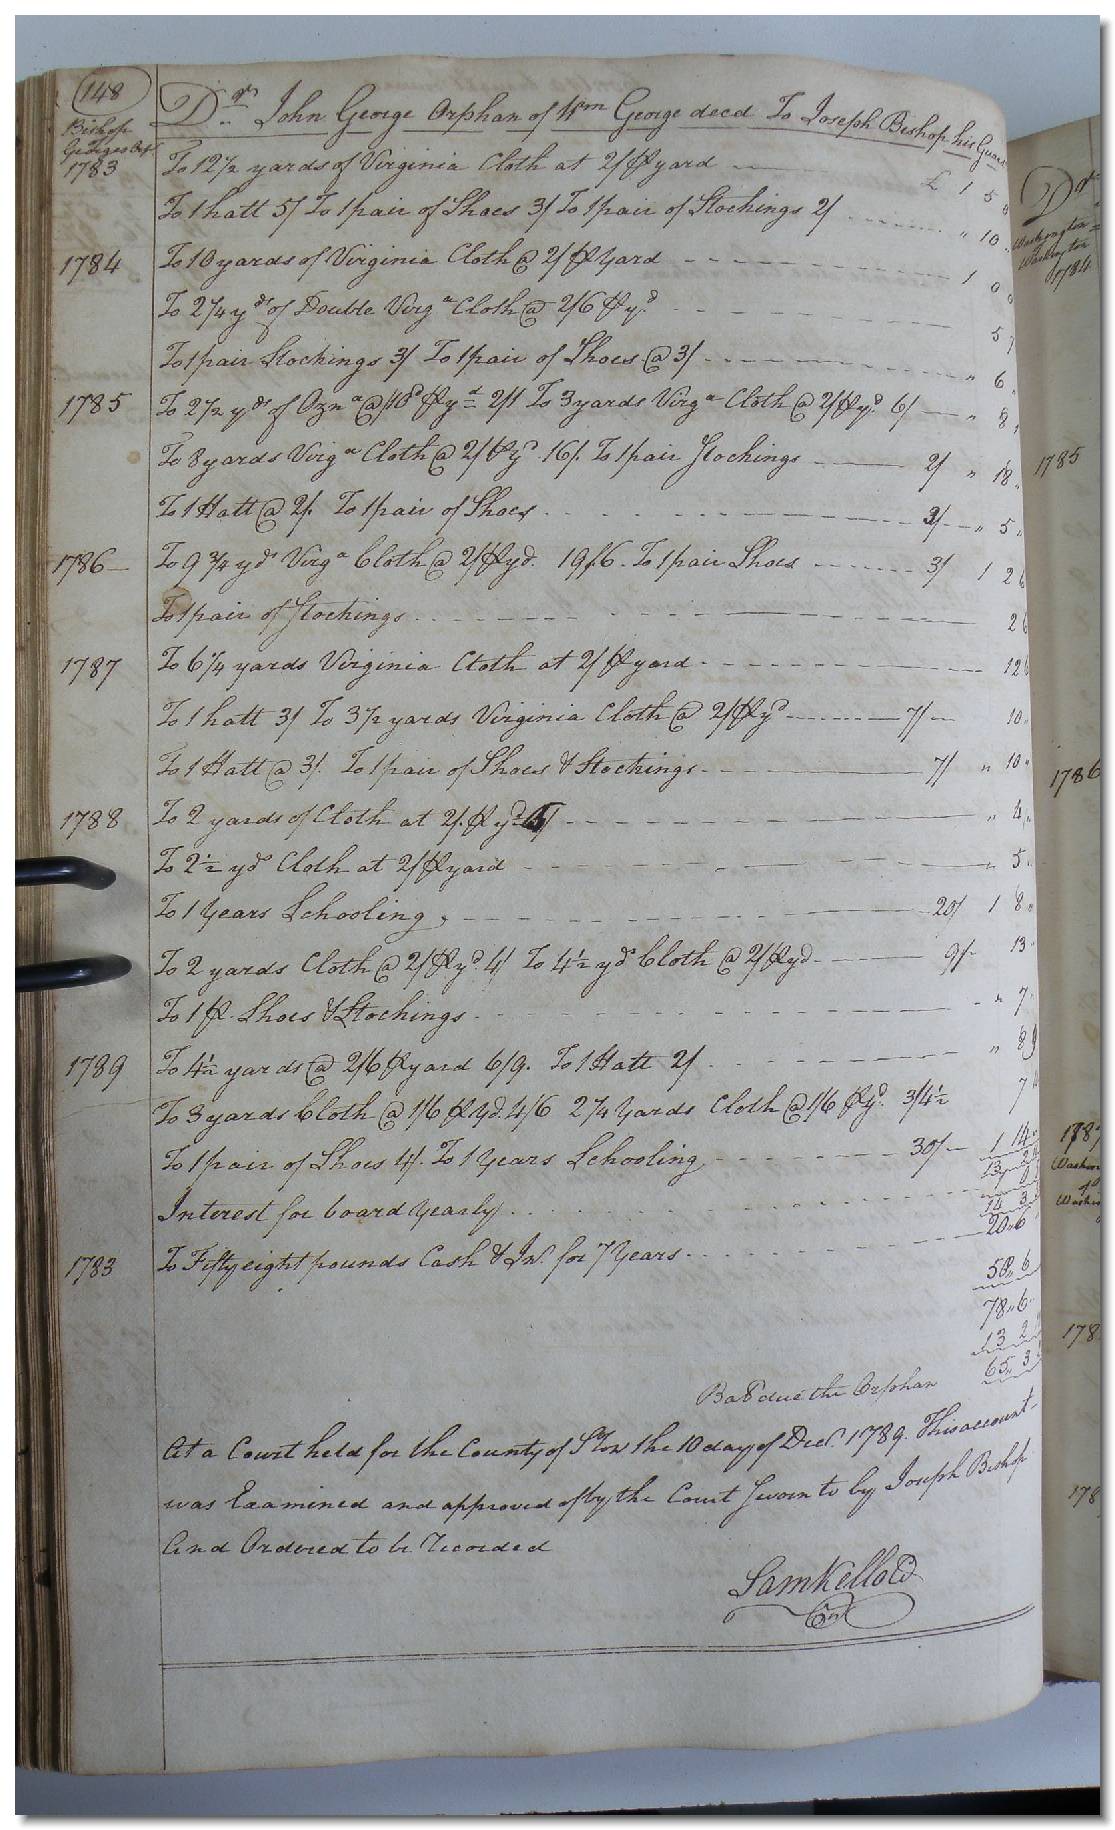 148
Dr. John George Orphan of Wm George decd To Joseph Bishop his
Bishop
Georges Orp
1783 To 12 1/2 yards of Virginia Cloth at 2/ ⅌ yard £ 1 5
To 1 hatt 5/ To 1 pair of Shoes 3/ To 1 pair of Stockings 2/ " 10
1784 To 10 yards of Virginia Cloth @ 2/ ⅌ Yard 1 0 0
To 2 1/4 yds of Double Virga Cloth @ 2/6 ⅌ yd 5 7
To 1 pair Stockings 3/ To 1 pair of Shoes @ 3/ " 6
1785 To 2 1/2 yds of Ozna @ /10d ⅌ yd 2/1 To 3 yards Virga Cloth @ 2/ ⅌ yd. 6/ " 8
To 8 yards Virga Cloth @ 2/ ⅌ yd. 16/. To 1 pair Stockings 2/ " 18
To 1 Hatt @ 2/. To 1 pair of Shoes 3/ " 5
1786 To 9 3/4 yds Virga Cloth @ 2/ ⅌ yd. 19/6. To 1 pair Shoes 3/ 1 2 6
To 1 pair of Stockings 2 6
1787 To 6 1/4 yards Virginia Cloth at 2/ ⅌ yard 12 6
To 1 hatt 3/ To 3 1/2 yards Virginia Cloth @ 2/ ⅌ yd 7/ 10
To 1 Hatt @ 3/. To 1 pair of Shoes & Stockings 7/ " 10
1788 To 2 yards of Cloth at 2/. ⅌ yd " 4
To 2 1/2 yds Cloth at 2/ ⅌ yard " 5
To 1 Years Schooling 20/ 1 8
To 2 yards Cloth @ 2/ ⅌ yd 4/ To 4 1/2 yds Cloth @ 2/ ⅌ yd 9/ 13
To 1 ⅌. Shoes & Stockings " 7
1789 To 4 1/2 yards @ 2/6 ⅌ yard 6/9. To 1 Hatt 2/ " 8 9
To 3 yards Cloth @ 1/6 ⅌ Yd. 4/6 2 1/4 Yards Cloth @ 1/6 ⅌ yd. 3/4 1/2 7
To 1 pair of Shoes 4/. To 1 Years Schooling 30/ 1 14
13 2
Interest for board Yearly 14 3
20.6
1783 To Fifty eight pounds Cash & Int. for 7 Years
58 " 6
78 " 6
13 2
65 " 3
Bal due the Orphan
At a Court held for the County of Shton the 10 day of Decr. 1789. This account
was Examined and approved of by the Court Sworn to by Joseph Bishop
And Ordered to be Recorded
Saml Kello Cd
Cur
Dr
Washington
1784
1785
1786
1787
178
178